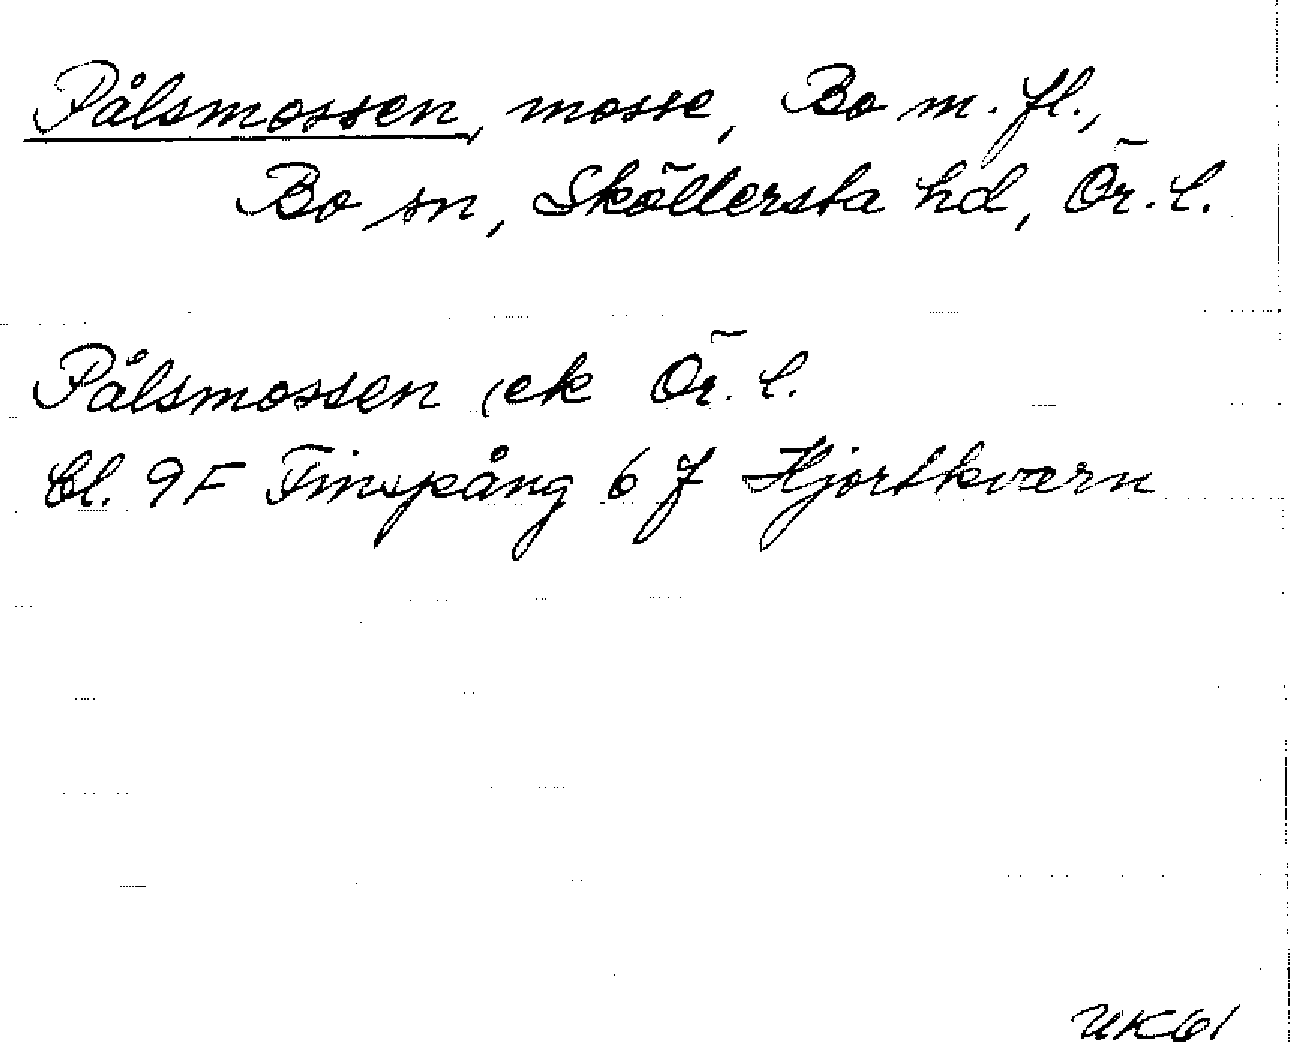 Pålsmossen, mosse, Bo m. fl.,
Bo sn, Sköllersta hd, Ör. l.
Pålsmossen ek Ör. l.
bl. 9F Finspång 6 f Hjortkvarn
UK61